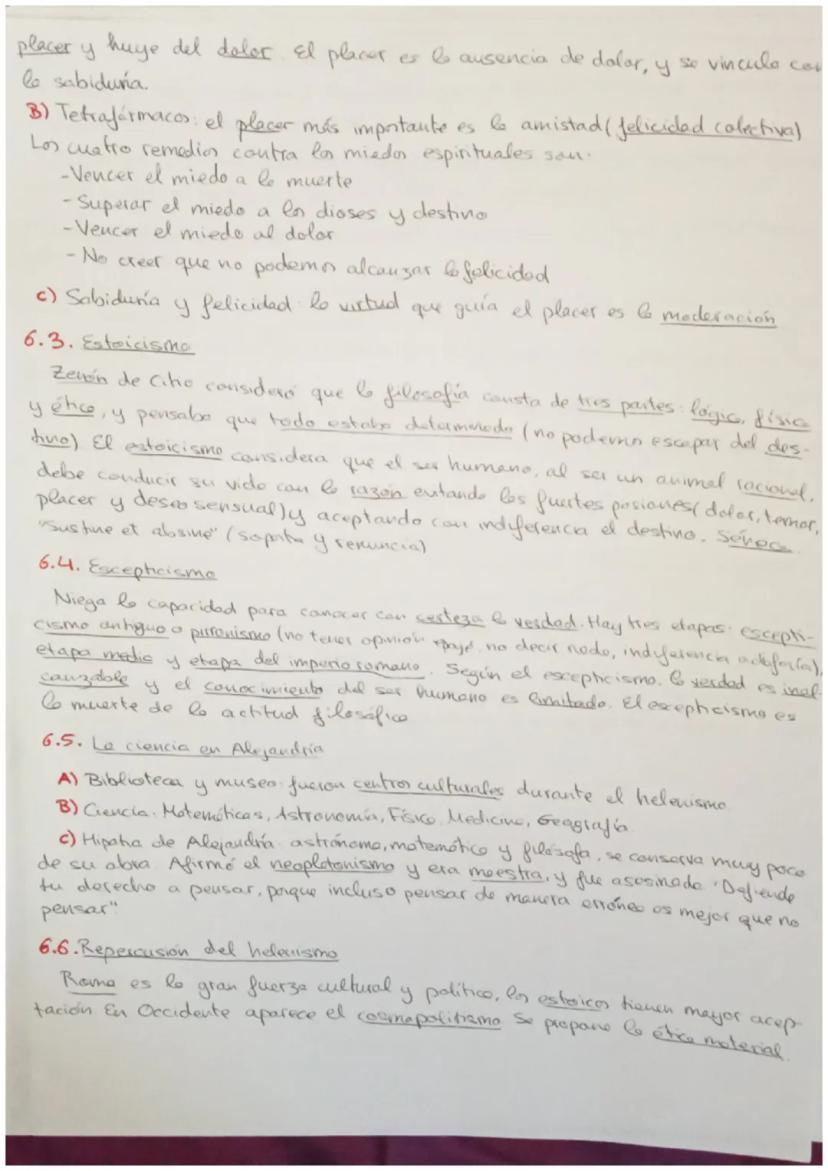 placer y huye del dolor. El placer es la ausencia de dolor, y se vincula con
la sabiduría.
B) Tetrafármacos: el placer más importante es la amistad (felicidad colectiva)
Los cuatro remedios contra los miedos espirituales son:
-Vencer el miedo a la muerte
-Superar el miedo a los dioses y destino
-Vencer el miedo al dolor
-No creer que no podemos alcanzar la felicidad
C) Sabiduría y felicidad: la virtud que guía el placer es la moderación
6.3. Estoicismo
Zenón de Citio consideró que la filosofía consta de tres partes: lógica, física
y ética, y pensaba que todo estaba determinado (no podemos escapar del des-
tino) El estoicismo considera que el ser humano, al ser un animal racional,
debe conducir su vida con la razón evitando las fuertes pasiones (dolor, temor,
placer y deseo sensual) y aceptando con indiferencia el destino. Séneca
"Sustine et absine" (soporta y renuncia)
6.4. Escepticismo
Niega la capacidad para conocer con certeza la verdad. Hay tres etapas: escepti-
cismo antiguo o pirronismo (no tener opinión no decir nada, indiferencia adiaforía),
etapa media y etapa del imperio romano. Según el escepticismo, la verdad es inal-
canzable y el conocimiento del ser humano es limitado. El escepticismo es
la muerte de la actitud filosófica
6.5. La ciencia en Alejandría
A) Biblioteca y museo: fueron centros culturales durante el helenismo
B) Ciencia: Matemáticas, Astronomía, Física, Medicina, Geografía
C) Hipatia de Alejandría: astrónoma, matemática y filósofa, se conserva muy poco
de su obra. Afirmó el neoplatonismo y era maestra, y fue asesinada "Defiende
tu derecho a pensar, porque incluso pensar de manera errónea es mejor que no
pensar"
6.6. Repercusión del helenismo
Roma es la gran fuerza cultural y política, los estoicos tienen mayor acep-
tación En Occidente aparece el cosmopolitismo Se propone la ética material.